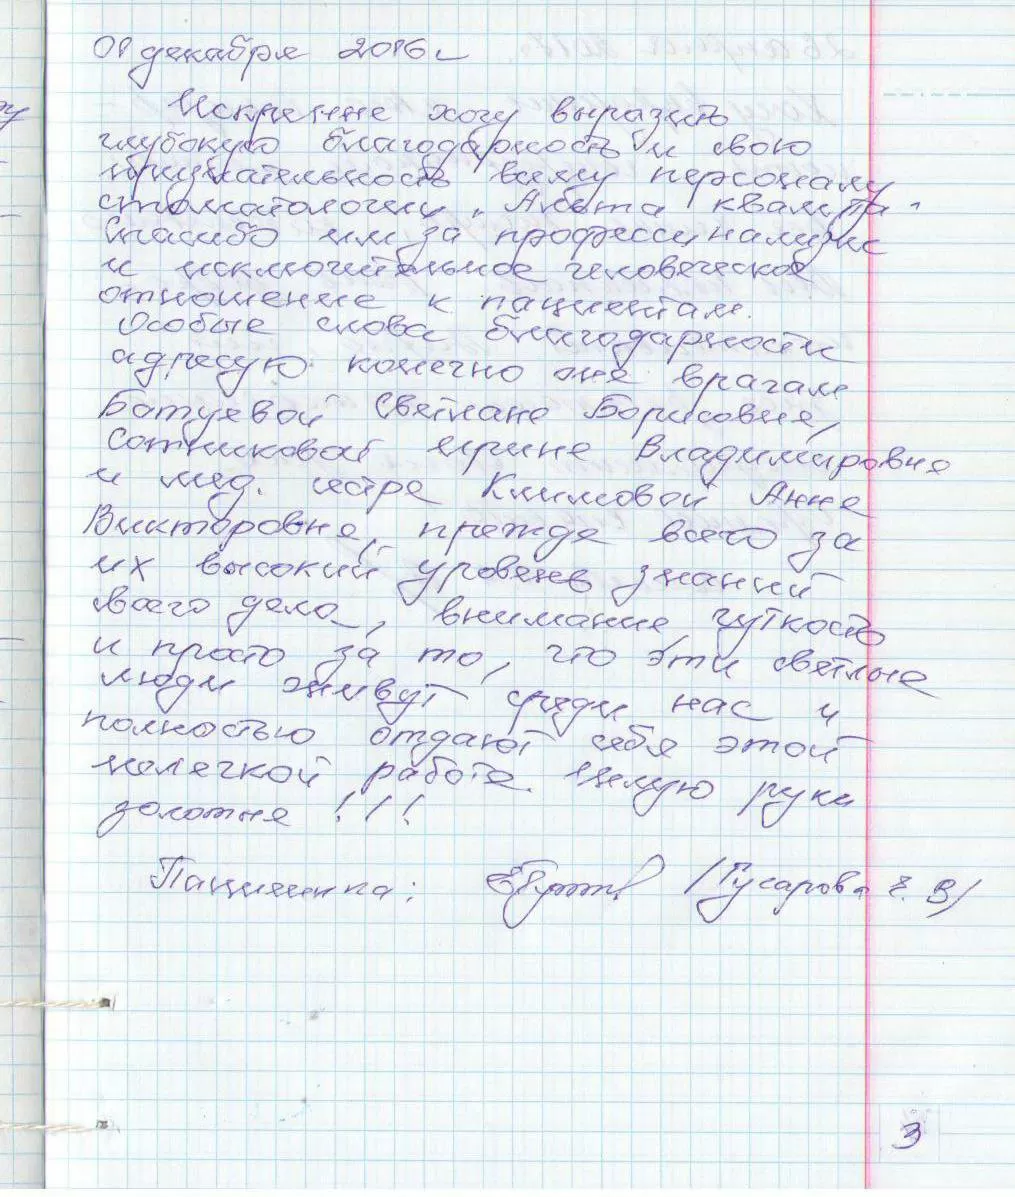 01 декабря 2016г
Искренне хочу выразить
глубокую благодарность и свою
признательность всему персоналу
стоматологии „Анита
Спасибо им за профессионализм
и исключительное человеческое
отношение к пациентам.
Особые слова благодарности
адресую конечно же врачам
Батуевой Светлане Борисовне,
Сотниковой Ирине Владимировне
и мед. сестре Климовой Анне
Викторовне, прежде всего за
их высокий уровень знаний
своего дела, внимание, чуткость
и просто за то, что эти светлые
люди живут среди нас и
полностью отдают себя этой
нелегкой работе. Целую руки
золотые !!!
Пациентка: (Гусарова Е. В)
3